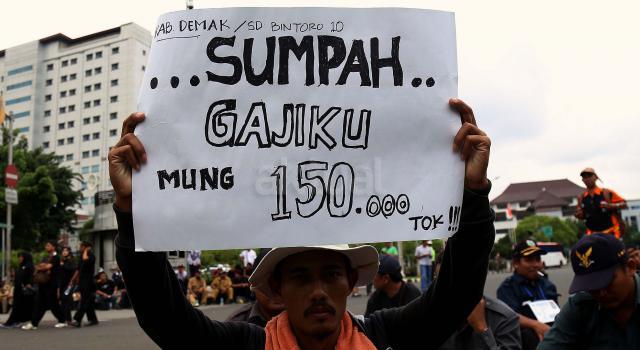 KAB. DEMAK / SD BINTORO 10
...SUMPAH..
GAJIKU
MUNG 150.000 TOK!!!